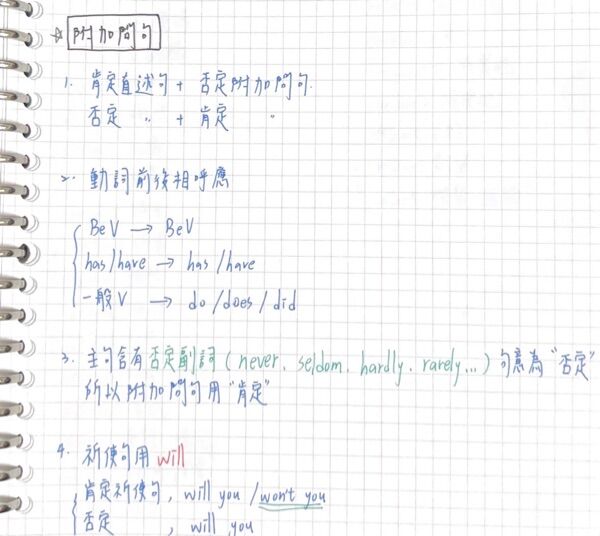 ☆ 附加問句
1. 肯定直述句 + 否定附加問句.
否定 〃 + 肯定 〃
2. 動詞前後相呼應
BeV → BeV
has/have → has/have
一般V → do/does/did
3. 主句含有否定副詞(never、seldom、hardly、rarely...)句意為"否定"
所以附加問句用"肯定"
4. 祈使句用 will
肯定祈使句, will you /won't you
否定 , will you